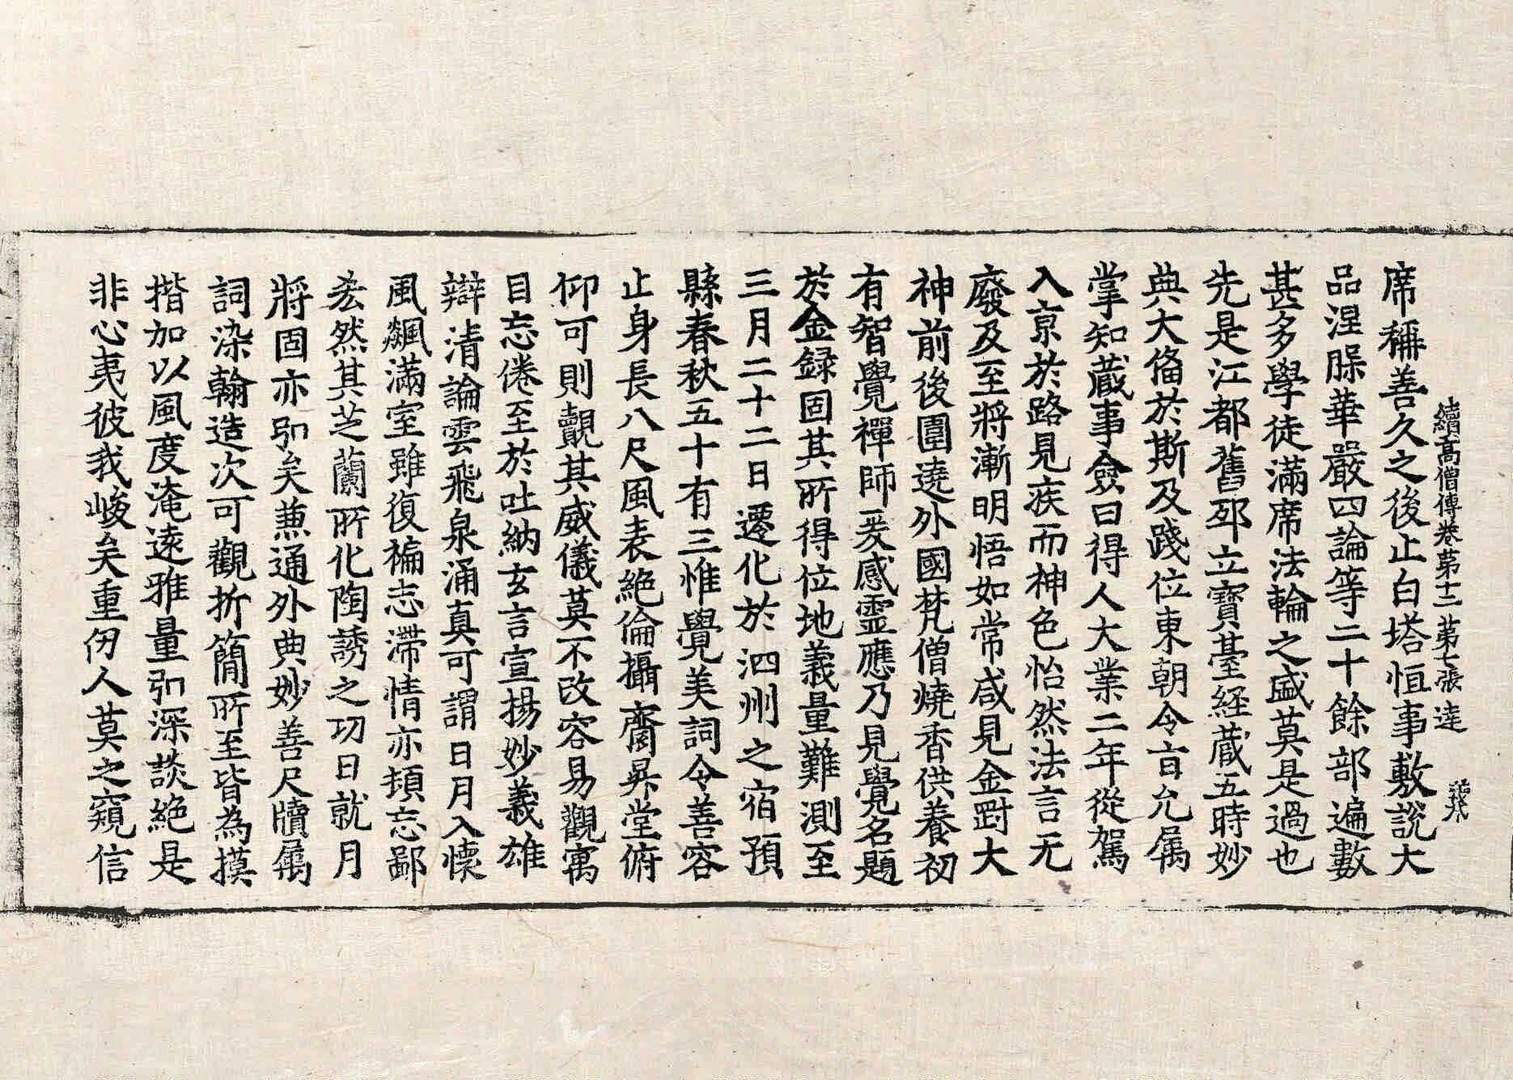 續高僧傳卷第十二 第七張 達
席稱善久之後止白塔恒事敷說大
品涅臊華嚴四論等二十餘部遍數
甚多學徒滿席法輪之盛莫是過也
先是江都舊邳立寶臺經藏五時妙
典大俻於斯及踐位東朝令旨允属
掌知藏事僉曰得人大業二年從駕
入京於路見疾而神色怡然法言无
廢及至將漸明悟如常咸見金對大
神前後圍遶外國梵僧燒香供養初
有智覺禪師爰感霊應乃見覺名題
於金録固其所得位地義量難測至
三月二十二日遷化於泗州之宿預
縣春秋五十有三惟覺美詞令善容
止身長八尺風表絶倫攝齋昇堂俯
仰可則覩其威儀莫不改容易觀寓
目忘倦至於吐納玄言宣揚妙義雄
辯清論雲飛泉涌真可謂日月入懷
風飈滿室雖復褊志滯情亦頓忘鄙
恡然其芝蘭所化陶誘之功日就月
將固亦弘矣兼通外典妙善尺牘属
詞染翰造次可觀折簡所至皆為摸
揩加以風度淹遠雅量弘深談絶是
非心夷彼我峻矣重仞人莫之窺信